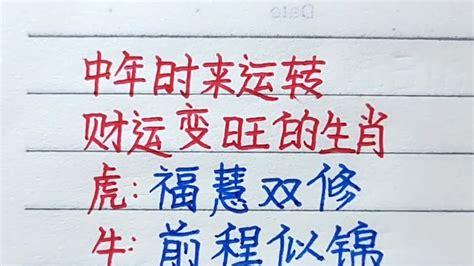 Date
中年时来运转
财运变旺的生肖
虎:福慧双修
牛:前程似锦